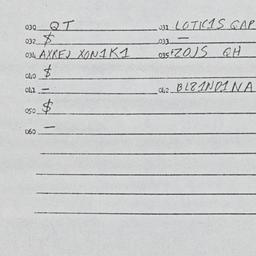 030 QT 031 LOTIC1S QAP
032 $ 033 —
034 AXREJ XON1K1 035 ZOJS QH
040 $
041 — 042 BL21ND1NA
050 $
060 —